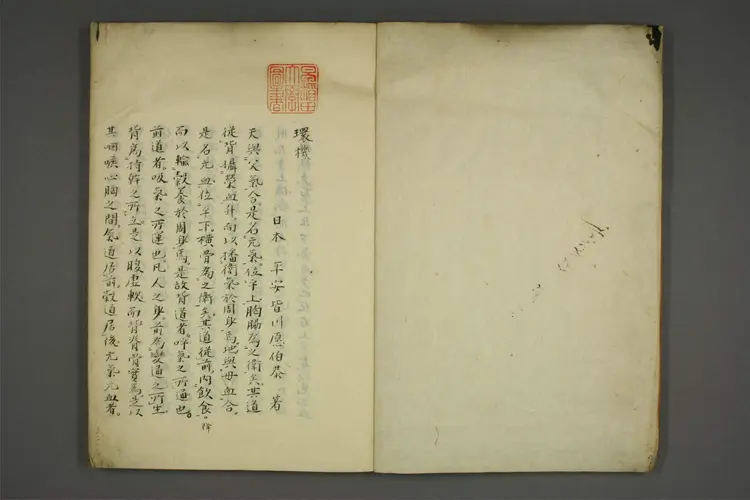 環機
日本 平安皆川愿伯恭著
天與父氣合。是名元氣。位乎上。胸膈為之衛矣。其道
從背攝榮血升。而以播衛氣於周身焉。地與母血合。
是名元血。位乎下。橫骨為之衛矣。其道從前內飲食。降
而以輸穀養於周身焉。是故背道者。呼氣之所通也。
前道者。吸氣之所運也。凡人之身。前為變通之所生。
背為持幹之所立。是以腹虛軟而背脊骨實焉。是以
其咽喉心胸之間。氣道居前。穀道居後。元氣元血者。